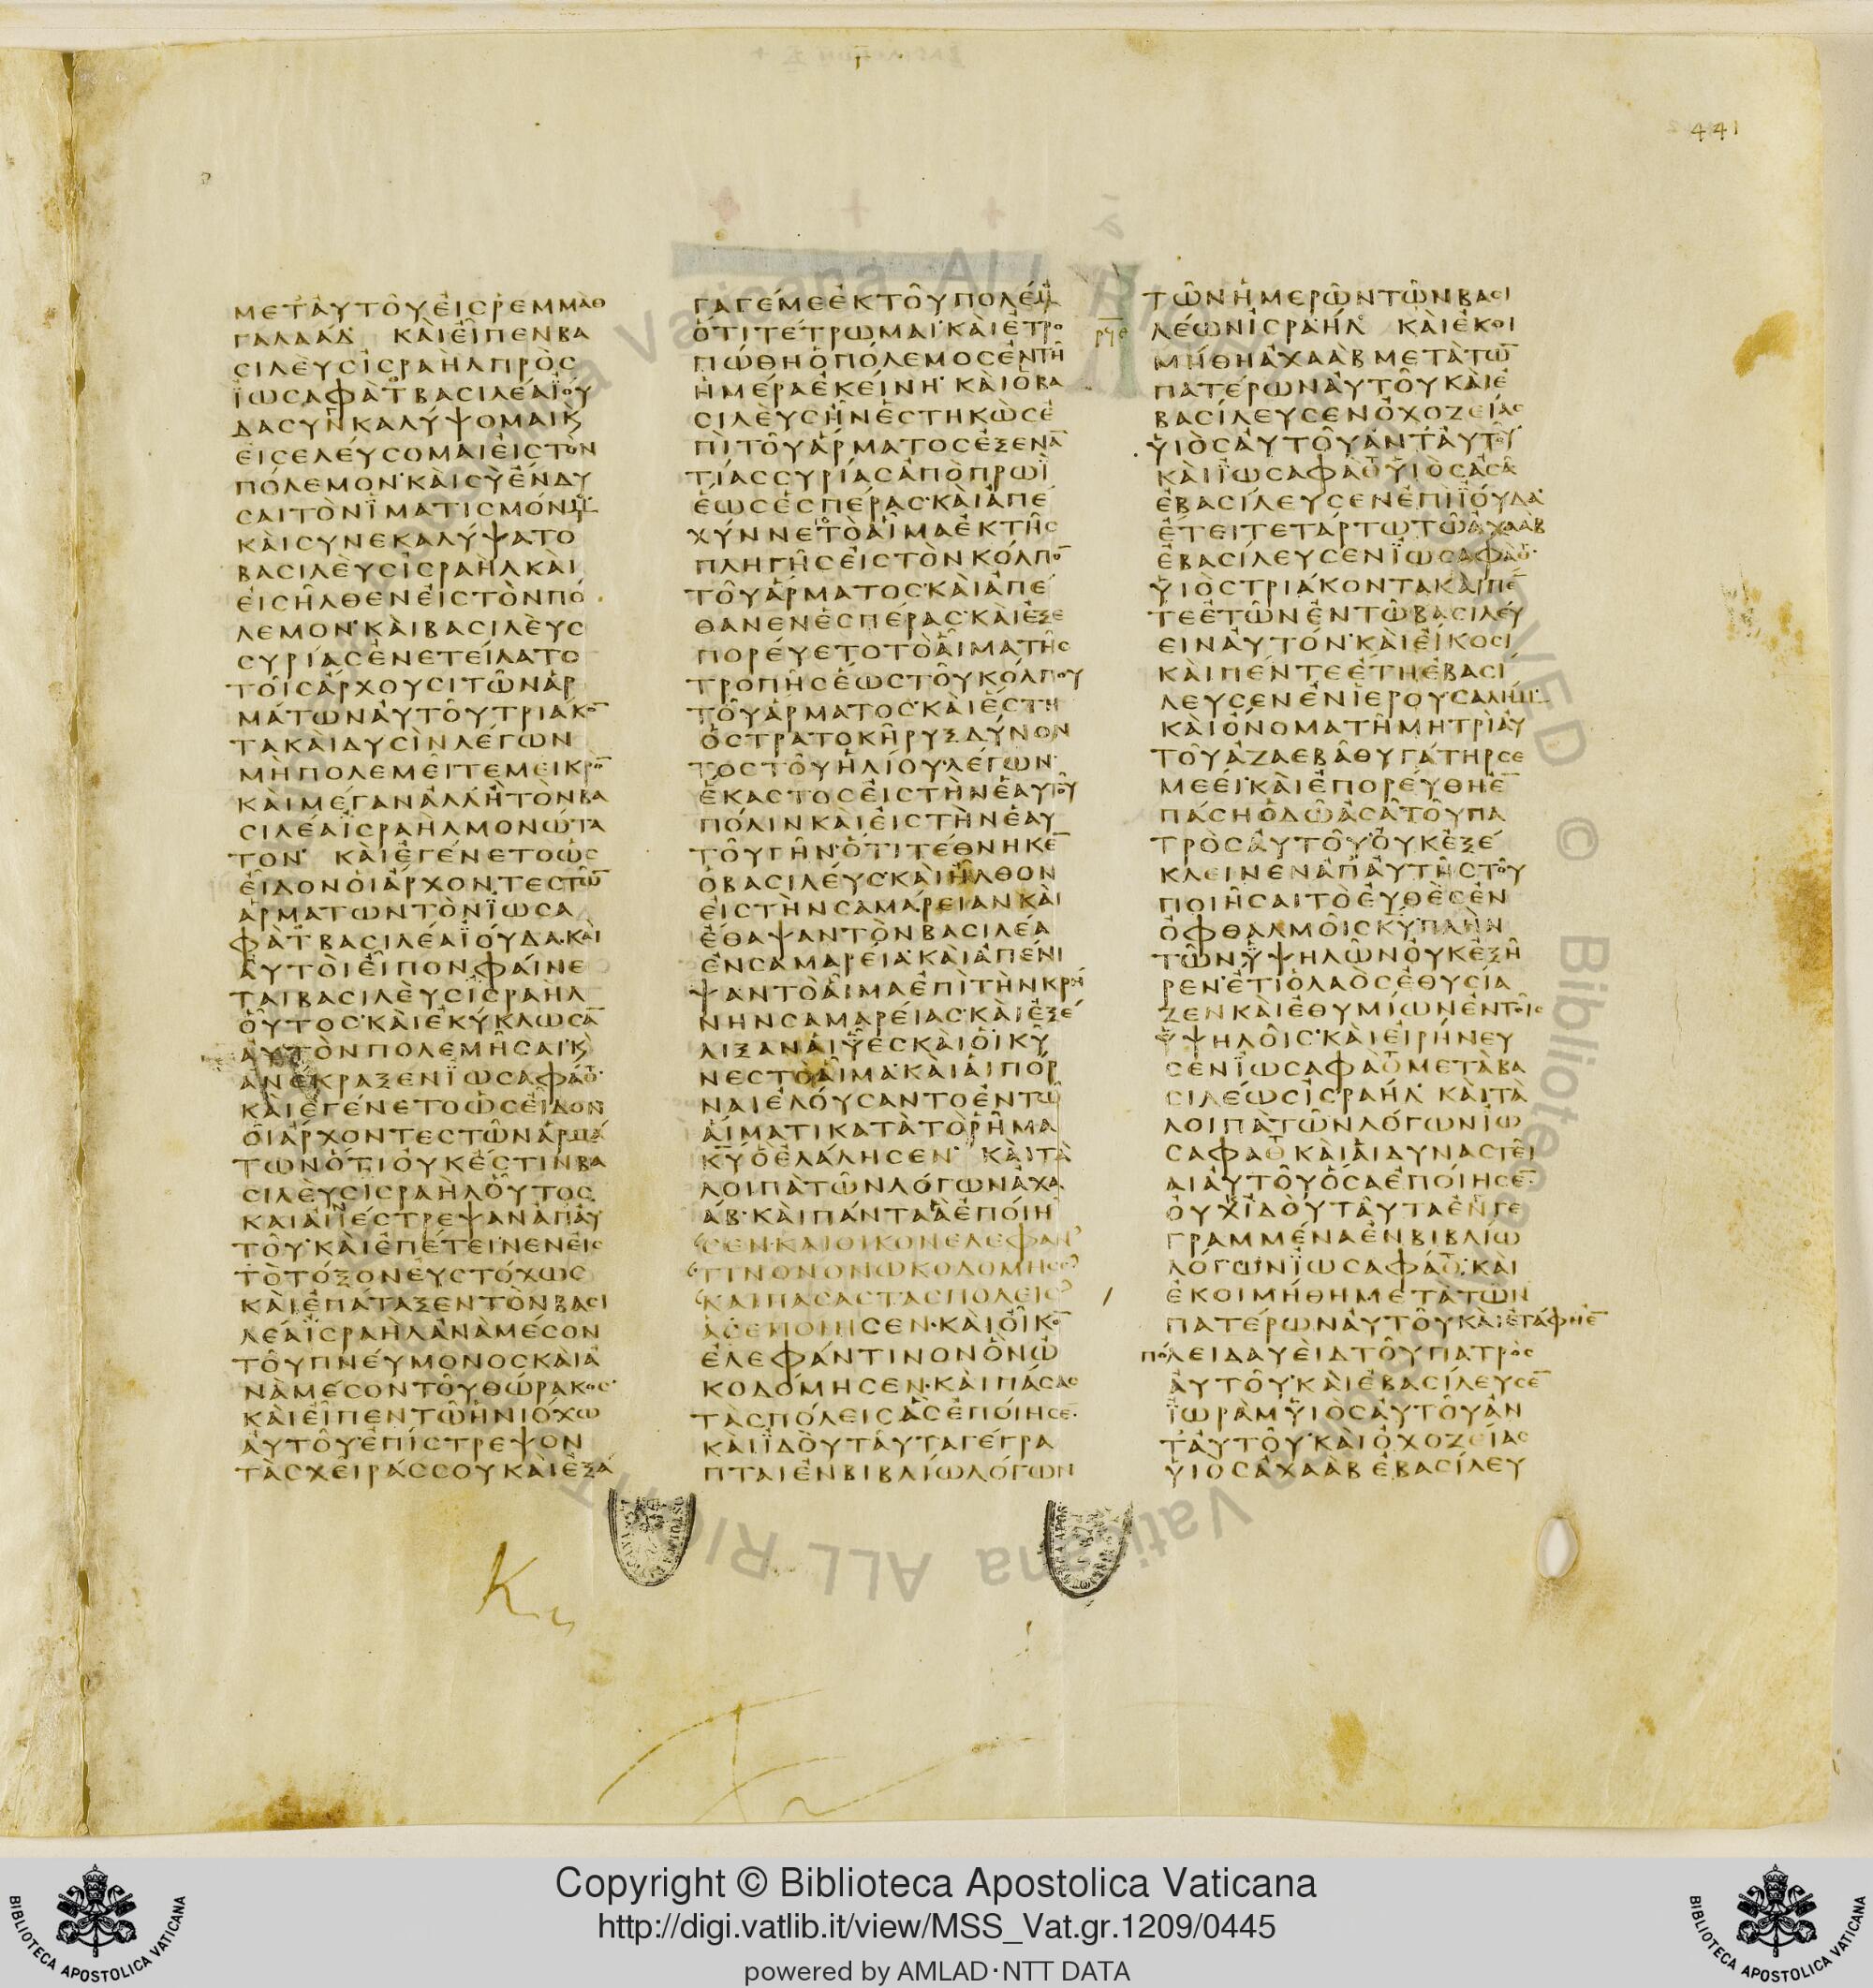 441
ΜΕΤΑΥΤΟΥΕΙCΡΕΜΜΑΘ
ΓΑΛΑΑΔ ΚΑΙΕΙΠΕΝΒΑ
CΙΛΕΥCΙCΡΑΗΛΠΡΟC
ΙΩCΑΦΑΤΒΑCΙΛΕΑΙΟΥ
ΔΑCΥΝΚΑΛΥΨΟΜΑΙΚ
ΕΙCΕΛΕΥCΟΜΑΙΕΙCΤΟΝ
ΠΟΛΕΜΟΝ ΚΑΙCΥΕΝΔΥ
CΑΙΤΟΝΙΜΑΤΙCΜΟΝΜΟΥ
ΚΑΙCΥΝΕΚΑΛΥΨΑΤΟ
ΒΑCΙΛΕΥCΙCΡΑΗΛΚΑΙ
ΕΙCΗΛΘΕΝΕΙCΤΟΝΠΟ
ΛΕΜΟΝ ΚΑΙΒΑCΙΛΕΥC
CΥΡΙΑCΕΝΕΤΕΙΛΑΤΟ
ΤΟΙCΑΡΧΟΥCΙΤΩΝΑΡ
ΜΑΤΩΝΑΥΤΟΥΤΡΙΑΚΟ̅
ΤΑΚΑΙΔΥCΙΝΛΕΓΩΝ
ΜΗΠΟΛΕΜΕΙΤΕΜΕΙΚΡΟ̅
ΚΑΙΜΕΓΑΝΑΛΛΗΤΟΝΒΑ
CΙΛΕΑΙCΡΑΗΛΜΟΝΩΤΑ
ΤΟΝ ΚΑΙΕΓΕΝΕΤΟΩC
ΕΙΔΟΝΟΙΑΡΧΟΝΤΕCΤΩ̅
ΑΡΜΑΤΩΝΤΟΝΙΩCΑ
ΦΑΤΒΑCΙΛΕΑΙΟΥΔΑΚΑΙ
ΑΥΤΟΙΕΙΠΟΝΦΑΙΝΕ
ΤΑΙΒΑCΙΛΕΥCΙCΡΑΗΛ
ΟΥΤΟC ΚΑΙΕΚΥΚΛΩCΑ̅
ΑΥΤΟΝΠΟΛΕΜΗCΑΙΚ
ΑΝΕΚΡΑΞΕΝΙΩCΑΦΑΘ
ΚΑΙΕΓΕΝΕΤΟΩCΕΙΔΟΝ
ΟΙΑΡΧΟΝΤΕCΤΩΝΑΡΜΑ
ΤΩΝΟΤΙΟΥΚΕCΤΙΝΒΑ
CΙΛΕΥCΙCΡΑΗΛΟΥΤΟC
ΚΑΙΑΠΕCΤΡΕΨΑΝΑΠΑΥ
ΤΟΥ ΚΑΙΕΠΕΤΕΙΝΕΝΕΙC
ΤΟΤΟΞΟΝΕΥCΤΟΧΩC
ΚΑΙΕΠΑΤΑΞΕΝΤΟΝΒΑCΙ
ΛΕΑΙCΡΑΗΛΑΝΑΜΕCΟΝ
ΤΟΥΠΝΕΥΜΟΝΟCΚΑΙΑ
ΝΑΜΕCΟΝΤΟΥΘΩΡΑΚΟC
ΚΑΙΕΙΠΕΝΤΩΗΝΙΟΧΩ
ΑΥΤΟΥΕΠΙCΤΡΕΨΟΝ
ΤΑCΧΕΙΡΑCCΟΥΚΑΙΕΞΑ
ΓΑΓΕΜΕΕΚΤΟΥΠΟΛΕΜΟΥ
ΟΤΙΤΕΤΡΩΜΑΙ ΚΑΙΕΤΡΟ
ΠΩΘΗΟΠΟΛΕΜΟCΕΝΤΗ
ΗΜΕΡΑΕΚΕΙΝΗ ΚΑΙΟΒΑ
CΙΛΕΥCΗΝΕCΤΗΚΩCΕ
ΠΙΤΟΥΑΡΜΑΤΟCΕΞΕΝΑ̅
ΤΙΑCCΥΡΙΑCΑΠΟΠΡΩΙ
ΕΩCΕCΠΕΡΑC ΚΑΙΑΠΕ
ΧΥΝΝΕΤΟΑΙΜΑΕΚΤΗC
ΠΛΗΓΗCΕΙCΤΟΝΚΟΛΠΟ̅
ΤΟΥΑΡΜΑΤΟC ΚΑΙΑΠΕ
ΘΑΝΕΝΕCΠΕΡΑC ΚΑΙΕΞΕ
ΠΟΡΕΥΕΤΟΤΟΑΙΜΑΤΗC
ΤΡΟΠΗCΕΩCΤΟΥΚΟΛΠΟΥ
ΤΟΥΑΡΜΑΤΟC ΚΑΙΕCΤΗ
ΟCΤΡΑΤΟΚΗΡΥΞΔΥΝΟΝ
ΤΟCΤΟΥΗΛΙΟΥ ΛΕΓΩΝ
ΕΚΑCΤΟCΕΙCΤΗΝΕΑΥΤΟΥ
ΠΟΛΙΝΚΑΙΕΙCΤΗΝΕΑΥ
ΤΟΥΓΗΝ ΟΤΙΤΕΘΝΗΚΕ̅
ΟΒΑCΙΛΕΥC ΚΑΙΗΛΘΟΝ
ΕΙCΤΗΝCΑΜΑΡΕΙΑΝΚΑΙ
ΕΘΑΨΑΝΤΟΝΒΑCΙΛΕΑ
ΕΝCΑΜΑΡΕΙΑ ΚΑΙΑΠΕΝΙ
ΨΑΝΤΟΑΙΜΑΕΠΙΤΗΝΚΡΗ
ΝΗΝCΑΜΑΡΕΙΑC ΚΑΙΕΞΕ
ΛΙΞΑΝΑΙΥΕCΚΑΙΟΙΚΥ
ΝΕCΤΟΑΙΜΑ ΚΑΙΑΙΠΟΡ
ΝΑΙΕΛΟΥCΑΝΤΟΕΝΤΩ
ΑΙΜΑΤΙΚΑΤΑΤΟΡΗΜΑ
Κ̅Υ̅ΟΕΛΑΛΗCΕΝ ΚΑΙΤΑ
ΛΟΙΠΑΤΩΝΛΟΓΩΝΑΧΑ
ΑΒ ΚΑΙΠΑΝΤΑΑΕΠΟΙΗ
CΕΝ ΚΑΙΟΙΚΟΝΕΛΕΦΑΝ
ΤΙΝΟΝΟΝΩΚΟΔΟΜΗCΕ
ΚΑΙΠΑCΑCΤΑCΠΟΛΕΙC
ΑCΕΠΟΙΗCΕΝ ΚΑΙΟΙΚΟ̅
ΕΛΕΦΑΝΤΙΝΟΝΟΝΩ
ΚΟΔΟΜΗCΕΝ ΚΑΙΠΑCΑC
ΤΑCΠΟΛΕΙCΑCΕΠΟΙΗCΕ̅
ΚΑΙΙΔΟΥΤΑΥΤΑΓΕΓΡΑ
ΠΤΑΙΕΝΒΙΒΛΙΩΛΟΓΩΝ
ΤΩΝΗΜΕΡΩΝΤΩΝΒΑCΙ
ΛΕΩΝΙCΡΑΗΛ ΚΑΙΕΚΟΙ
ΜΗΘΗΑΧΑΑΒΜΕΤΑΤΩ̅
ΠΑΤΕΡΩΝΑΥΤΟΥΚΑΙΕ
ΒΑCΙΛΕΥCΕΝΟΧΟΖΕΙΑC
ΥΙΟCΑΥΤΟΥΑΝΤΑΥΤΟΥ
ΚΑΙΙΩCΑΦΑΘΥΙΟCΑCΑ
ΕΒΑCΙΛΕΥCΕΝΕΠΙΙΟΥΔΑ
ΕΤΕΙΤΕΤΑΡΤΩΤΩΑΧΑΑΒ
ΕΒΑCΙΛΕΥCΕΝΙΩCΑΦΑΘ
ΥΙΟCΤΡΙΑΚΟΝΤΑΚΑΙΠΕ̅
ΤΕΕΤΩΝΕΝΤΩΒΑCΙΛΕΥ
ΕΙΝΑΥΤΟΝ ΚΑΙΕΙΚΟCΙ
ΚΑΙΠΕΝΤΕΕΤΗΕΒΑCΙ
ΛΕΥCΕΝΕΝΙΕΡΟΥCΑΛΗΜ
ΚΑΙΟΝΟΜΑΤΗΜΗΤΡΙΑΥ
ΤΟΥΑΖΑΕΒΑΘΥΓΑΤΗΡCΕ
ΜΕΕΙ ΚΑΙΕΠΟΡΕΥΘΗΕ̅
ΠΑCΗΟΔΩΑCΑΤΟΥΠΑ
ΤΡΟCΑΥΤΟΥ ΟΥΚΕΞΕ
ΚΛΕΙΝΕΝΑΠΑΥΤΗCΤΟΥ
ΠΟΙΗCΑΙΤΟΕΥΘΕCΕΝ
ΟΦΘΑΛΜΟΙCΚ̅Υ̅ ΠΛΗΝ
ΤΩΝΥΨΗΛΩΝΟΥΚΕΞΗ
ΡΕΝ ΕΤΙΟΛΑΟCΕΘΥCΙΑ
ΖΕΝΚΑΙΕΘΥΜΙΩΝΕΝΤΟΙC
ΥΨΗΛΟΙC ΚΑΙΕΙΡΗΝΕΥ
CΕΝΙΩCΑΦΑΘΜΕΤΑΒΑ
CΙΛΕΩCΙCΡΑΗΛ ΚΑΙΤΑ
ΛΟΙΠΑΤΩΝΛΟΓΩΝΙΩ
CΑΦΑΘ ΚΑΙΑΙΔΥΝΑCΤΕΙ
ΑΙΑΥΤΟΥΟCΑΕΠΟΙΗCΕ̅
ΟΥΧΙΔΟΥΤΑΥΤΑΕΝΓΕ
ΓΡΑΜΜΕΝΑΕΝΒΙΒΛΙΩ
ΛΟΓΩΝΙΩCΑΦΑΘ ΚΑΙ
ΕΚΟΙΜΗΘΗΜΕΤΑΤΩΝ
ΠΑΤΕΡΩΝΑΥΤΟΥΚΑΙΕΤΑΦΗΕ̅
ΠΟΛΕΙΔΑΥΕΙΔΤΟΥΠΑΤΡΟC
ΑΥΤΟΥ ΚΑΙΕΒΑCΙΛΕΥCΕ̅
ΙΩΡΑΜΥΙΟCΑΥΤΟΥΑΝ
ΤΑΥΤΟΥ ΚΑΙΟΧΟΖΕΙΑC
ΥΙΟCΑΧΑΑΒΕΒΑCΙΛΕΥ
Copyright © Biblioteca Apostolica Vaticana
http://digi.vatlib.it/view/MSS_Vat.gr.1209/0445
powered by AMLAD·NTT DATA
BIBLIOTECA APOSTOLICA VATICANA
BIBLIOTECA APOSTOLICA VATICANA